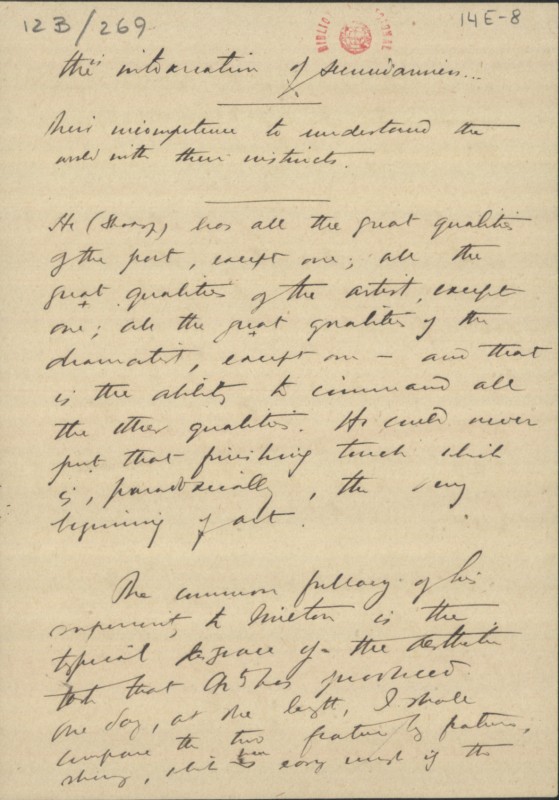 12B/269
14E-8
BIBLIO
of
their incompetence to understand the
world with their instincts.
He has all the great qualities
of the poet, except one; all the
great qualities of the artist, except
one; all the great qualities of the
dramatist, except one — and that
is the ability to command all
the other qualities. He could never
put that finishing touch which
is, paradoxically, the very
beginning of art.
The common fallacy of his
superiority to Milton is the
typical disgrace of the aesthetic
that has produced.
One day, at length, I shall
compare the two feature by feature,
is easy the